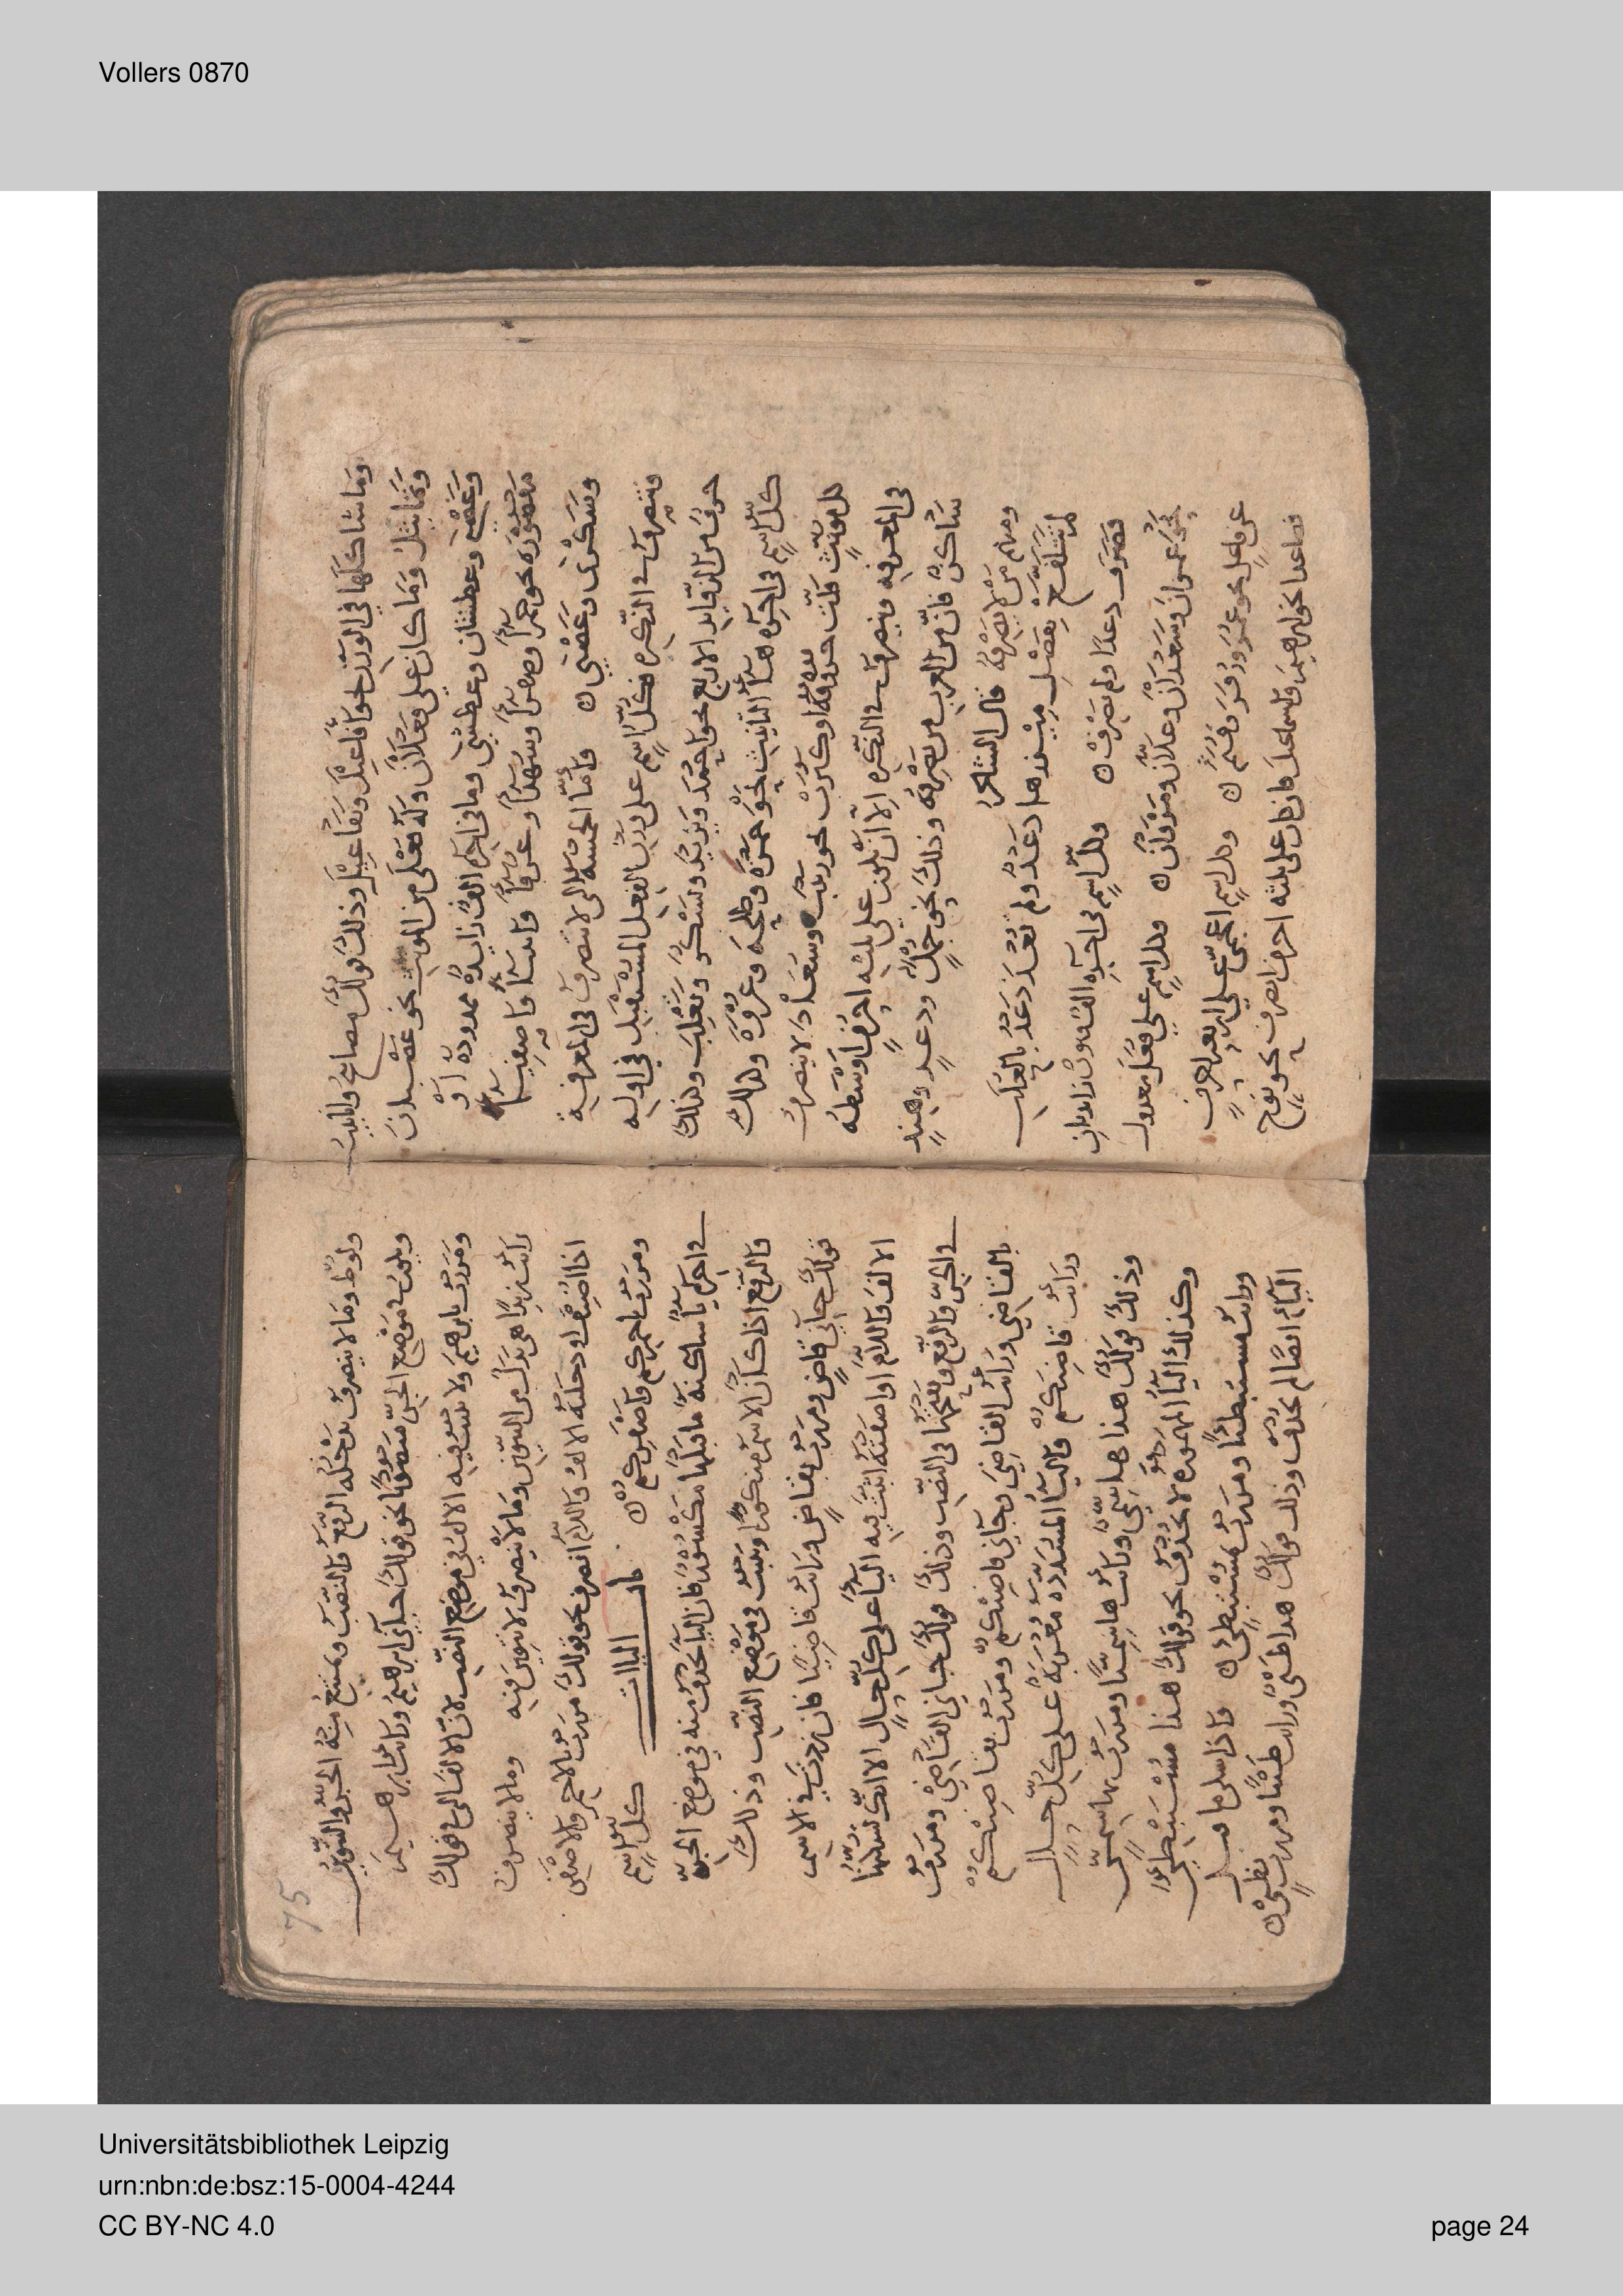 Vollers 0870
وما شاكلها في الوزن نحو افاعيل وتفاعيل وذلك قولك مصابيح
وتماثيل وما كان على فعلان وله فعلى من المونث نحو غضبان
وغضبى وعطشان وعطشى وما في اخره الف زايدة ممدودة او
مقصوره نحو حمرآ وصفرآ واصفيآ
وسكرى وغضبى ه واما الخمسه التي لا تنصرف في المعرفة
وتنصرف في النكره فكل اسم على وزن الفعل المستقبل في اوله
حرف من الزوايد الاربع نحو احمد ويزيد وتشكر وتغلب وكذلك
كل اسم في اخره هآ التانيث نحو حمزه وطلحه وعروة وكذلك
كل مونث قلت حروفه او كثرت نحو زينب وسعاد لا ينصرف
في المعرفه وينصرف في النكره الا ان يكون على ثلثه احرف اوسطه
ساكن فان من العرب من يصرفه وذلك نحو جمل ودعد وهند
ومنهم من لا يصرفه قال الشاعر
لم تتلفع بفضل ميزرها دعد ولم تغذ دعد بالعلب
فصرف دعدا ولم يصرف ه وكل اسم في اخره الف ونون زايدتان
نحو عمران وسعدان وعلان ومروان ه وكل اسم على فعل معدول
عن فاعل نحو عمر وزفر وقثم ه وكل اسم اعجمي على اربعه احرف
فصاعدا نحو ابرهيم واسماعيل فان كان على ثلثه احرف انصرف نحو نوح
75
ولوط وما لا ينصرف يدخله الرفع والنصب ويمتنع منه الجر والتنوين
ويكون في موضع الجر مفتوحا نحو قولك جآني ابرهيم ورايت ابرهيم
ومررت بابرهيم ولا تثبت فيه الالف في موضع النصب لان الالف التي في قولك
رايت زيدا هي بدل من التنوين وما لا ينصرف لا تنوين فيه وما لا ينصرف
اذا اضيف او دخلته الالف واللام انصرف نحو قولك مررت بالاحمر والاصفر
ومررت باحمركم واصفركم ه باب اليآات كل اسم
في اخره يآ ساكنة ما قبلها مكسور فان اليآ تحذف منه في موضع الجر
والرفع اذا كان الاسم منكورا وتثبت في موضع النصب وذلك
قولك جآني قاض ومررت بقاض ورايت قاضيا فان زدت في الاسم
الالف واللام او اضفته اثبت فيه اليآ على كل حال الا انك تسكنها
في الجر والرفع وتفتحها في النصب وذلك قولك جاني القاضي ومررت
بالقاضي ورايت القاضي وجآني قاضيكم ومررت بقاضيكم
ورايت قاضيكم واليآ المشدده معربة على كل حال
وذلك قولك هذا هاشمي ورايت هاشميا ومررت بهاشمي
وكذلك اليآ المهموزه لا تحذف نحو قولك هذا مستبطئ
ورايت مستبطئا ومررت بمستبطئ ه واذا سكن ما قبل
اليآء ايضا لم تحذف وذلك قولك هذا ظبي ورايت ظبيا ومررت بظبي ه
Universitätsbibliothek Leipzig
urn:nbn:de:bsz:15-0004-4244
CC BY-NC 4.0
page 24